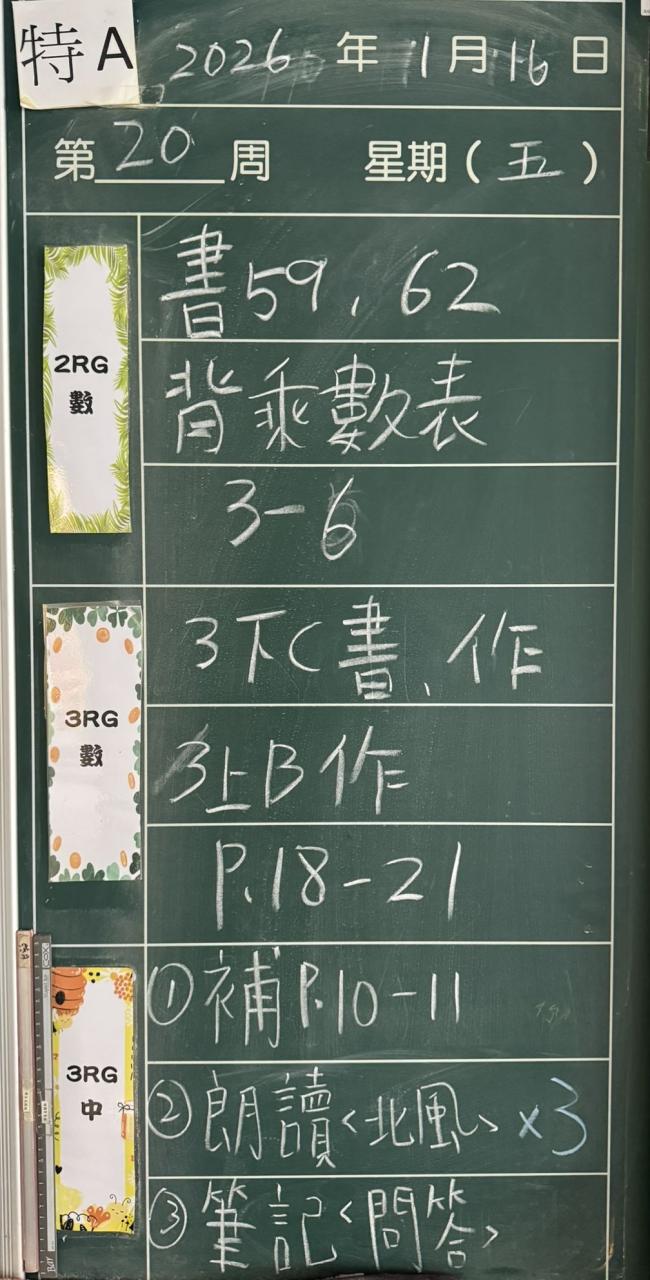 特A 2026 年 1 月 16 日
第 20 周 星期（五）
2RG
數
書59，62
背乘數表
3-6
3RG
數
3下C書、作
3上B作
P.18-21
3RG
中
①補P.10-11
②朗讀<北風>×3
③筆記<問答>